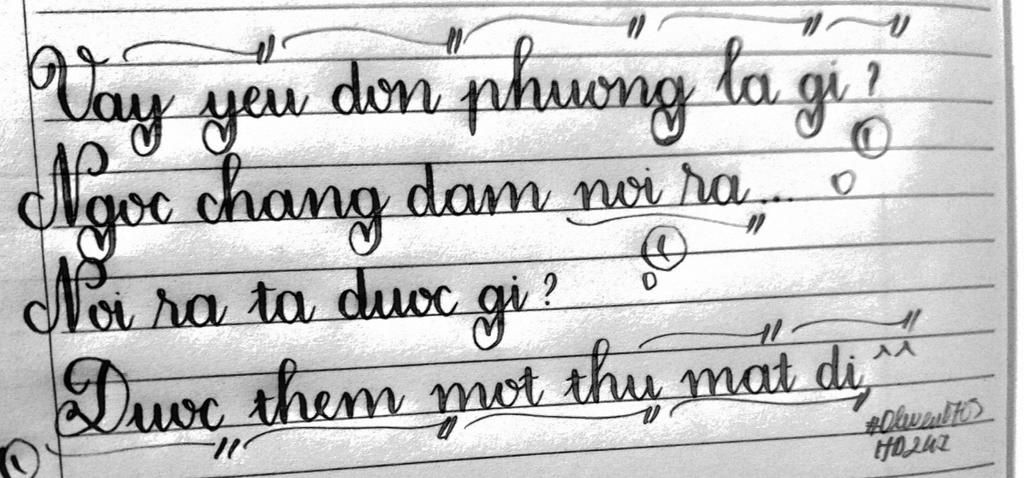 Vay yeu don phuong la gi?
Ngoc chang dam noi ra...
Noi ra ta duoc gi?
Duoc them mot thu mat di, ^^